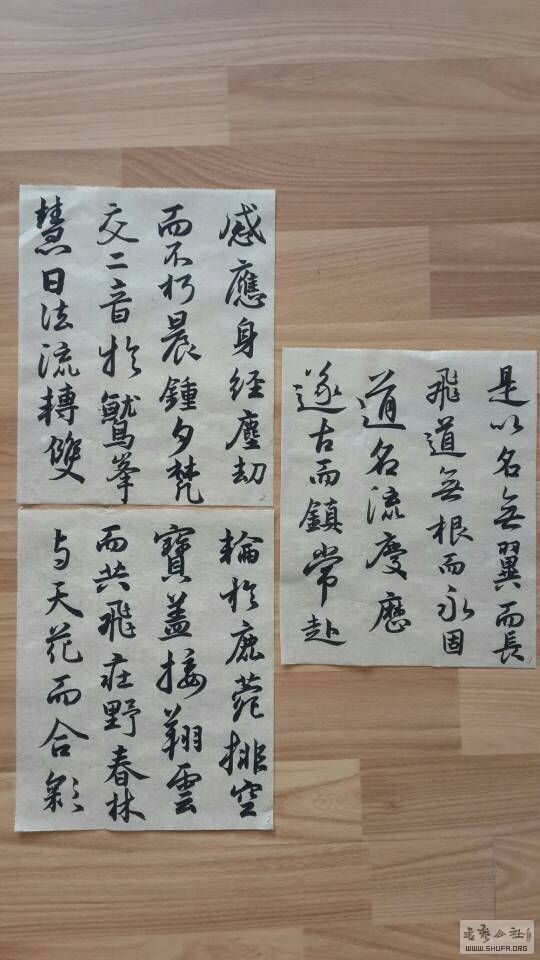 是以名無翼而長
飛道無根而永固
道名流慶歷
遂古而鎮常赴
1
感應身經塵劫
而不朽晨鍾夕梵
交二音於鷲峯
慧日法流轉雙
2
輪於鹿菀排空
寶蓋接翔雲
而共飛莊野春林
与天花而合彩
书艺公社
WWW.SHUFA.ORG